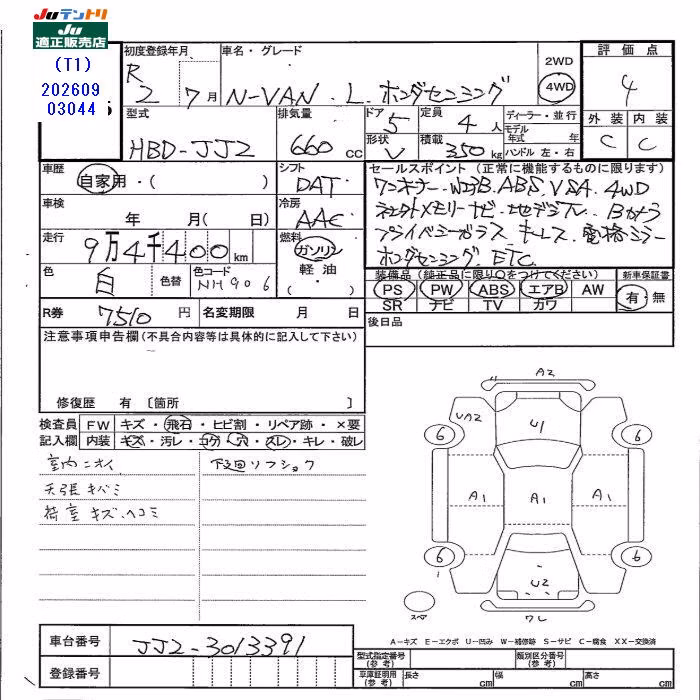 Juテントリ
Ju
適正販売店
(T1)
202609
03044
初度登録年月
R 2 7月
車名・グレード
N-VAN . L. ホンダセンシング
2WD
4WD
評価点
4
外装 内装
C C
型式
HBD-JJ2
排気量
660 cc
ドア
5
定員
4 人
形状
V
積載
350 kg
ディーラー・並行
モデル年式 年
ハンドル 左・右
車歴
自家用・( )
シフト
DAT
セールスポイント (正常に機能するものに限ります)
ワンオーナー. WエアB. ABS. VSA. 4WD
ネットメモリーナビ. 地デジTV. Bカメラ
プライバシーガラス キーレス. 電格ミラー
ホンダセンシング ETC
車検
年 月( 日)
冷房
AAC
走行
9万4千400km
燃料
ガソリン
軽油
( )
色
白
色替
色コード
NH906
装備品 (純正品に限り○をつけてください)
PS PW ABS エアB AW
SR ナビ TV カワ
新車保証書
有・無
R券
7510 円
名変期限 月 日
後日品
注意事項申告欄(不具合内容等は具体的に記入して下さい)
修復歴 有 〔箇所 〕
検査員記入欄
FW キズ・飛石・ヒビ割・リペア跡・×要
内装 キズ・汚レ・コゲ・穴・スレ・キレ・破レ
室内ニオイ
下回リフショク
天張キバミ
荷室 キズ.ヘコミ
A2
UA2
U1
6 6
A1 A1 A1
6 6
U2
スペア
ワレ
A-キズ E-エクボ U-凹み W-補修跡 S-サビ C-腐食 XX-交換済
車台番号
JJ2-3013391
登録番号
型式指定番号(参考)
類別区分番号(参考)
車庫証明用(参考)
長さ cm 幅 cm 高さ cm